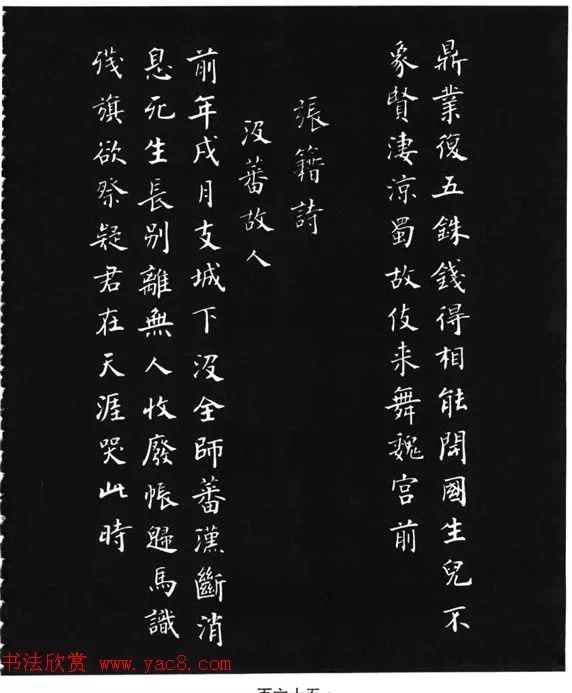 鼎業復五銖錢得相能開國生兒不
象賢淒涼蜀故伎来舞魏宮前
張籍詩
沒蕃故人
前年戍月支城下沒全師蕃漢斷消
息死生長别離無人收廢帳歸馬識
殘旗欲祭疑君在天涯哭此時
书法欣赏 www.yac8.com